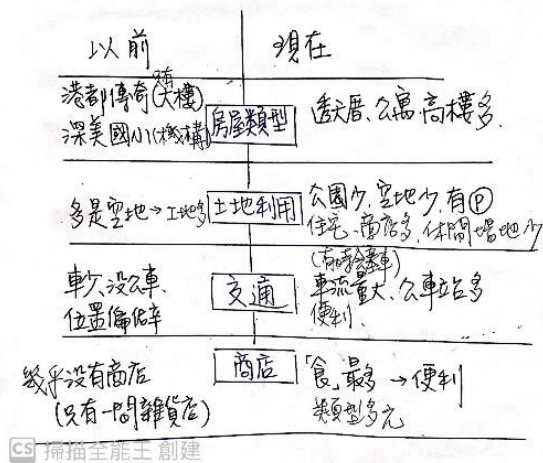 以前
現在
港都傳奇(只有大樓)
深美國小(機構)
房屋類型
透天厝、公寓、高樓多。
多是空地→土地多
土地利用
公園少、空地少、有Ⓟ
住宅、商店多、休閒場地少
(有時會塞車)
車少、沒公車、
位置偏僻
交通
車流量大、公車站多
便利、
幾乎沒有商店
(只有一間雜貨店)
商店
「食」最多→便利
類型多元
CS 掃描全能王 創建